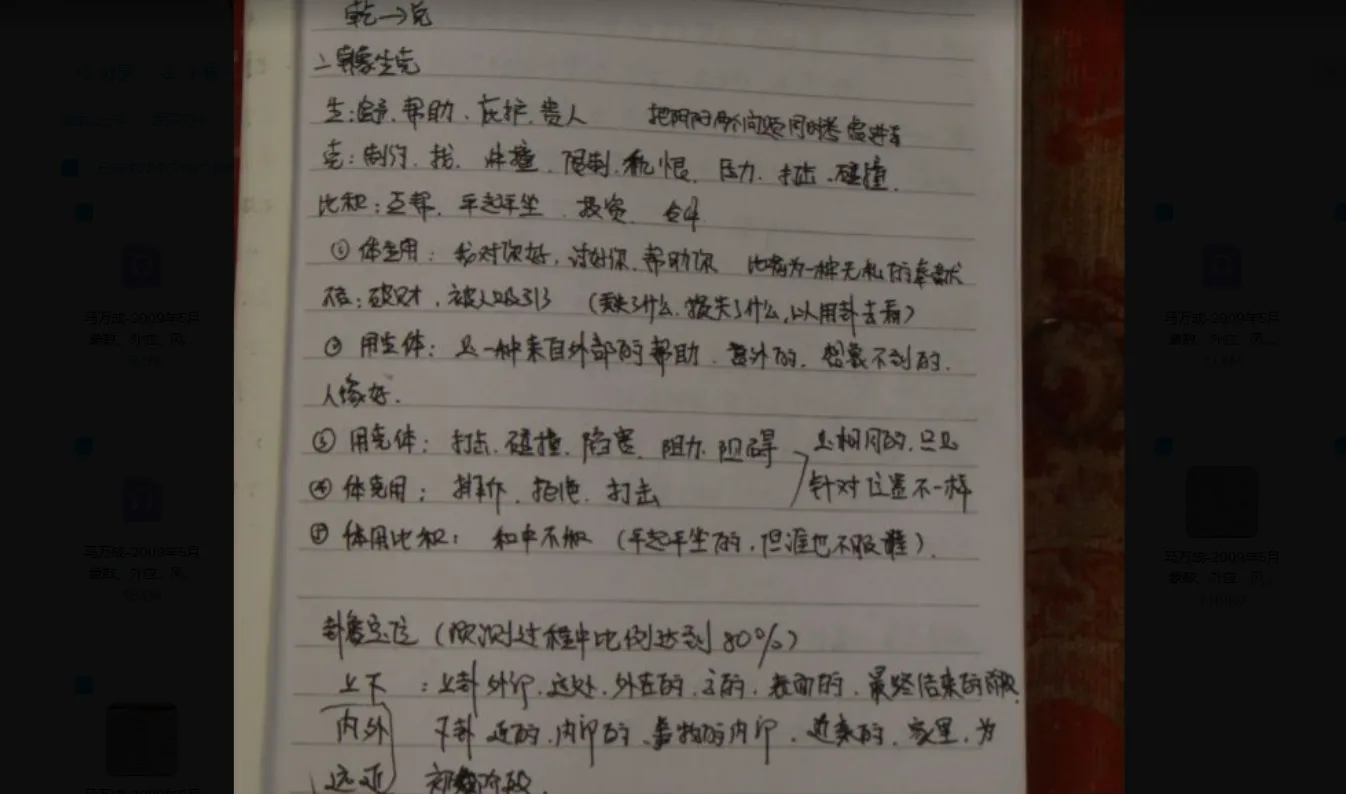 乾→兑
二、卦象生克
生：给予、帮助、庇护、贵人　　把阴阳两个问题同时考虑进去
克：制约、找、冲撞、限制、仇恨、压力、打击、碰撞、
比和：互帮、平起平坐、投资、合作
① 体生用：我对你好，讨好你、帮助你　比喻为一种无私的奉献
破财，被人吸引（丢失了什么、损失了什么，以用卦去看）
② 用生体：是一种来自外部的帮助、意外的、想象不到的、
人缘好、
③ 用克体：打击、碰撞、陷害、阻力、阻碍
是相同的，只是
④ 体克用：排斥、拒绝、打击
针对位置不一样
⑤ 体用比和：和中不和（平起平坐的，但谁也不服谁）、
卦象定位（预测过程中比例达到80%）
上下：上卦 外部、远处、外在的、表面的、最终结果的阶段
内外　下卦 近的、内部的、事物的内部、近来的、家里、为
远近　初级阶段、
马万成-2009年5月
马万成-2009年5月
马万成-2009年5月
马万成-2009年5月